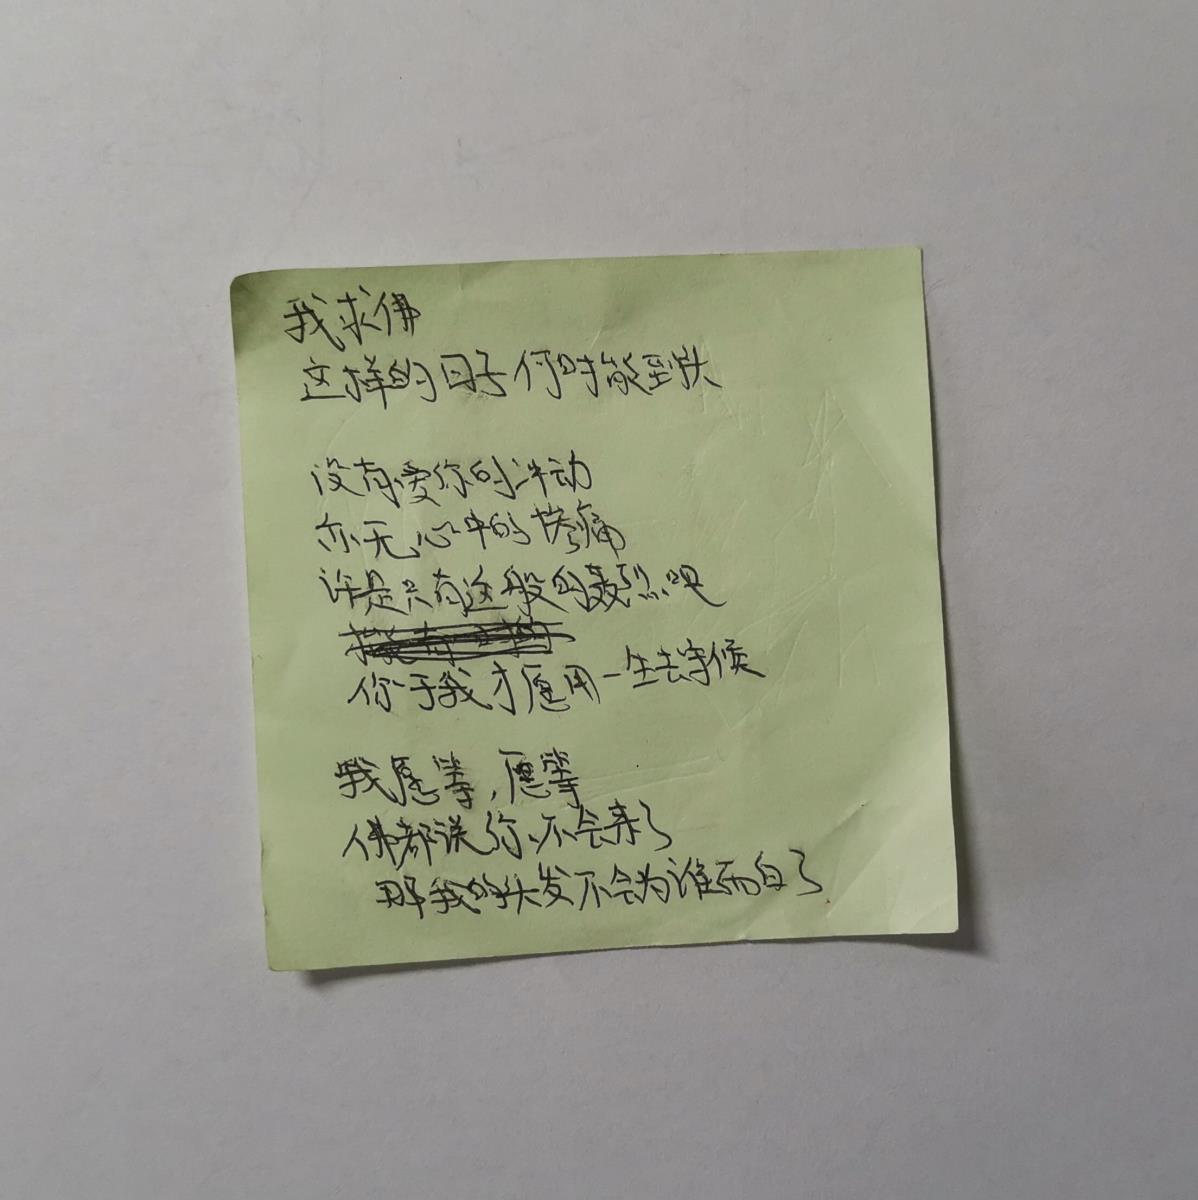 我求佛
这样的日子何时能到头
没有爱你的冲动
亦无心中的疼痛
许是只有这般的轰烈吧
你于我才愿用一生去守候
我愿等,愿等
佛都说你不会来了
那我的头发不会为谁而白了